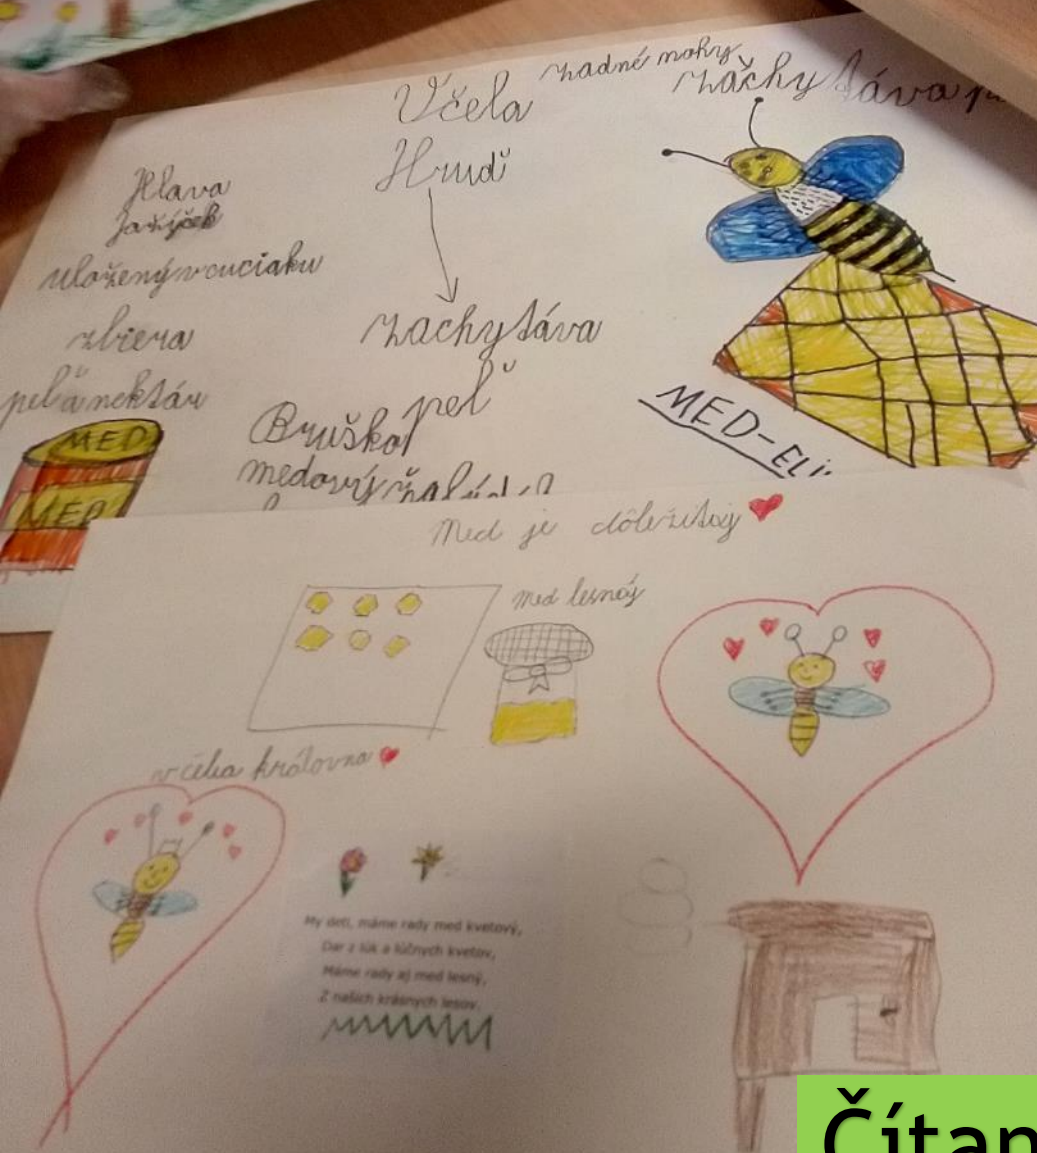 Včela
zadné nohy
Hruď
zachytáva
peľ
Hlava
Jazýček
uložený v cuciaku
zbiera
peľ a nektár
MED
MED
Bruško
medový
MED-ELÍ
Med je dôležitý
med lesný
včelia kráľovna
My deti, máme rady med kvetový,
Dar z lúk a lúčnych kvetov,
Máme rady aj med lesný,
Z našich krásnych lesov.
Čítan